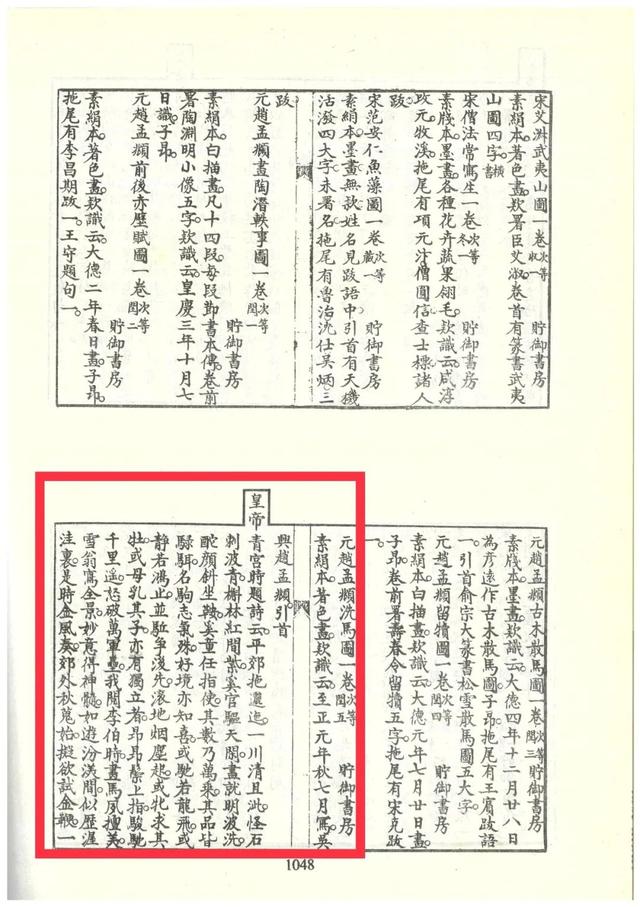 宋艾淑武夷山圖一卷次等收一　貯御書房
素絹本著色畫款署臣艾淑卷首有篆書武夷
山圖四字橫書
宋僧法常寫生一卷次等冬一　貯御書房
素牋本墨畫各種花卉蔬果翎毛款識云咸淳
改元牧溪拖尾有項元汴僧圓信查士標諸人
跋
宋范安仁魚藻圖一卷次等藏一　貯御書房
素絹本墨畫無款姓名見跋語中引首有天機
活潑四大字未署名拖尾有魯治沈仕吳炳三
跋
元趙孟頫畫陶潛軼事圖一卷次等閏一　貯御書房
素絹本白描畫凡十四段每段節書本傳卷前
署陶淵明小像五字款識云皇慶三年十月七
日識子昂
元趙孟頫前後赤壁賦圖一卷次等閏二　貯御書房
素絹本著色畫款識云大德二年春日畫子昂
拖尾有李昌期跋一王守題句一
元趙孟頫古木散馬圖一卷次等閏三　貯御書房
素牋本墨畫款識云大德四年十二月廿八日
為彥遠作古木散馬圖子昂拖尾有王賓跋語
一引首俞宗大篆書松雪散馬圖五大字
元趙孟頫留犢圖一卷次等閏四　貯御書房
素絹本白描畫款識云大德元年七月廿日畫
子昂卷前署壽春令留犢五字拖尾有宋克跋
一
元趙孟頫洗馬圖一卷次等閏五　貯御書房
素絹本著色畫款識云至正元年秋七月寫吳
興趙孟頫引首
皇帝青宮時題詩云平郊拖邐迤一川清且泚怪石
刺波青榭林紅間紫奚官驅天閑畫就明波洗
酡顏斜坐鞍奚童任指使其數乃萬乘其品皆
騄駬名駒志氣殊好境亦知喜或馳若龍飛或
靜若鴻止並駈争後先滚地烟塵起或牝求其
牡或母乳其子亦有獨立者昂昂鬐上指駿馳
千里遥詎破萬軍壘我聞李伯時畫馬夙擅美
雪翁寫全景妙意得神髓如遊汾渼間似歷渥
洼裏是時金風奏郊外秋蒐始擬欲試金鞭一
1048